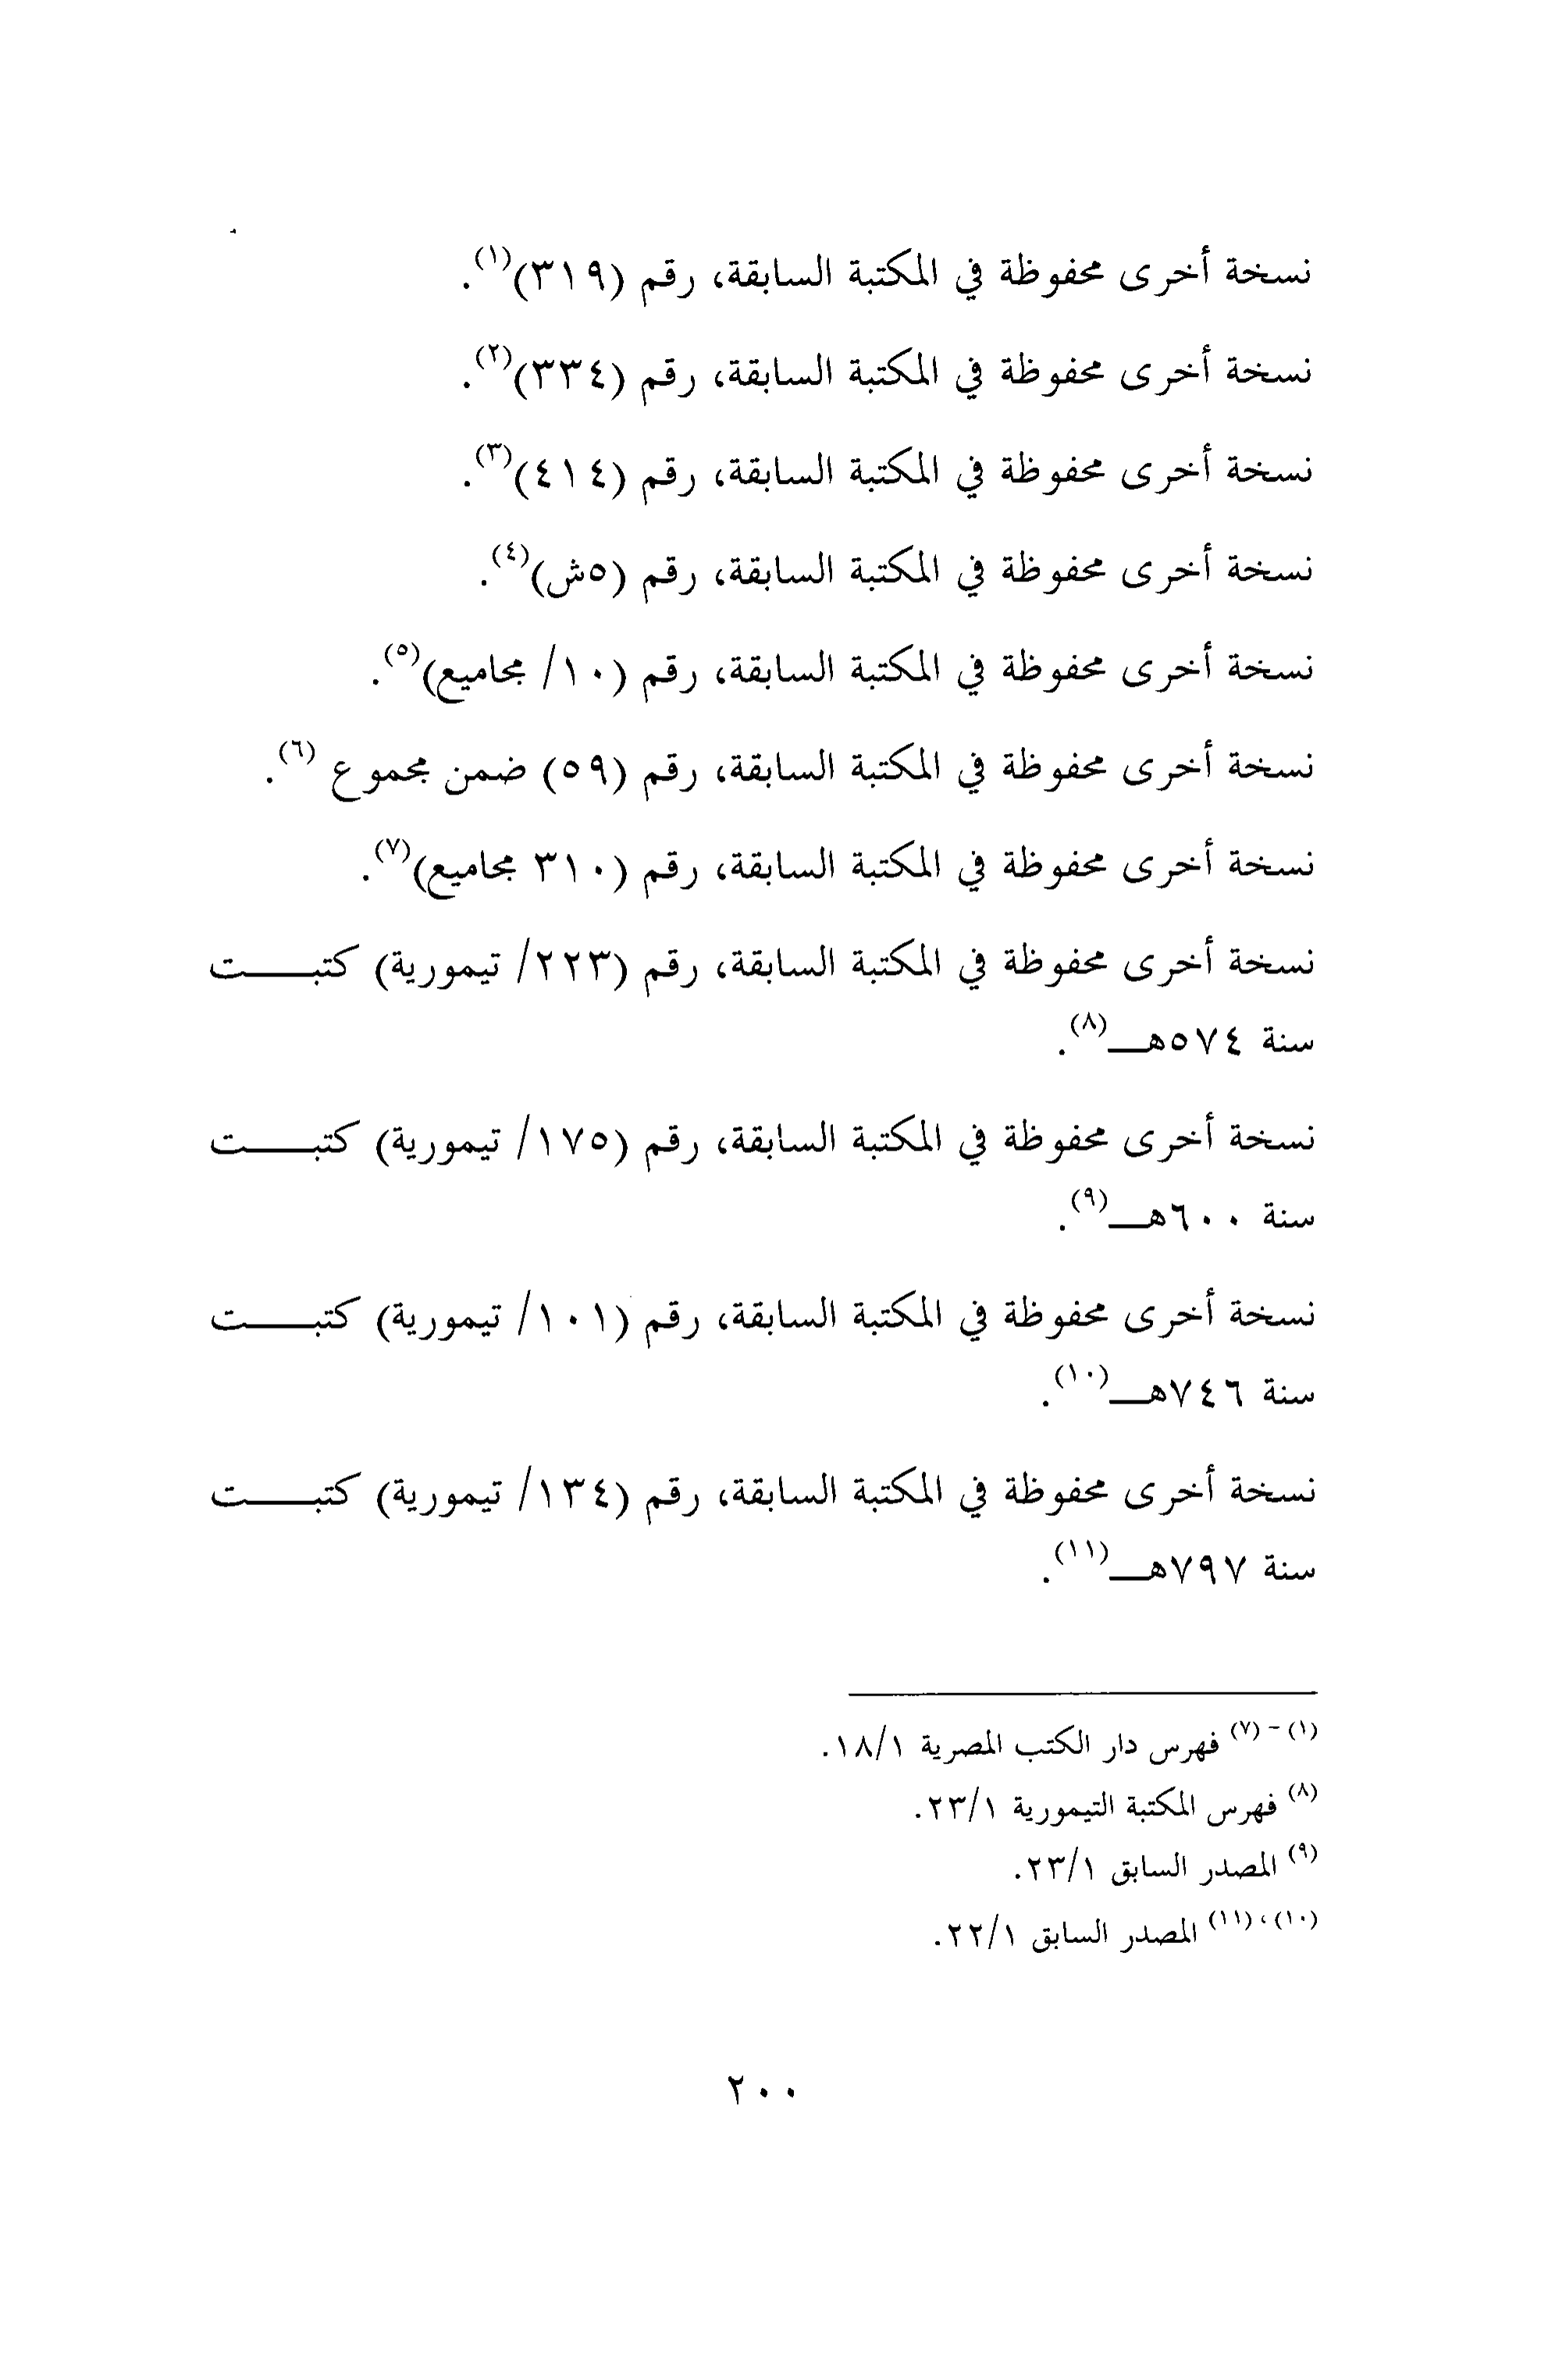 نسخة أخرى محفوظة في المكتبة السابقة، رقم (٣١٩)(١).
نسخة أخرى محفوظة في المكتبة السابقة، رقم (٣٣٤)(٢).
نسخة أخرى محفوظة في المكتبة السابقة، رقم (٤١٤)(٣).
نسخة أخرى محفوظة في المكتبة السابقة، رقم (٥ش)(٤).
نسخة أخرى محفوظة في المكتبة السابقة، رقم (١٠/ مجاميع)(٥).
نسخة أخرى محفوظة في المكتبة السابقة، رقم (٥٩) ضمن مجموع (٦).
نسخة أخرى محفوظة في المكتبة السابقة، رقم (٣١٠ مجاميع)(٧).
نسخة أخرى محفوظة في المكتبة السابقة، رقم (٢٢٣/ تيمورية) كتبـــــت
سنة ٥٧٤هـــ(٨).
نسخة أخرى محفوظة في المكتبة السابقة، رقم (١٧٥/ تيمورية) كتبـــــت
سنة ٦٠٠هـــ(٩).
نسخة أخرى محفوظة في المكتبة السابقة، رقم (١٠١/ تيمورية) كتبـــــت
سنة ٧٤٦هـــ(١٠).
نسخة أخرى محفوظة في المكتبة السابقة، رقم (١٣٤/ تيمورية) كتبـــــت
سنة ٧٩٧هـــ(١١).
(١) - (٧) فهرس دار الكتب المصرية ١٨/١.
(٨) فهرس المكتبة التيمورية ٢٣/١.
(٩) المصدر السابق ٢٣/١.
(١٠)، (١١) المصدر السابق ٢٢/١.
٢٠٠